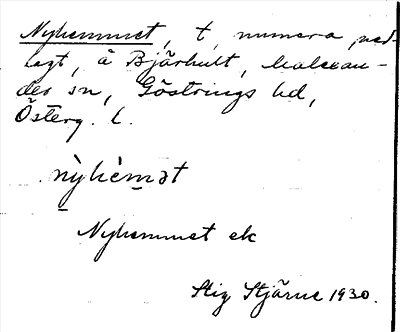 Nyhemmet, t, numera ned-
lagt, å Bjärhult, Malexan-
der sn, Göstrings hd,
Österg. l.
nỳhèm̲ət
Nyhemmet ek
Stig Stjärne 1930.